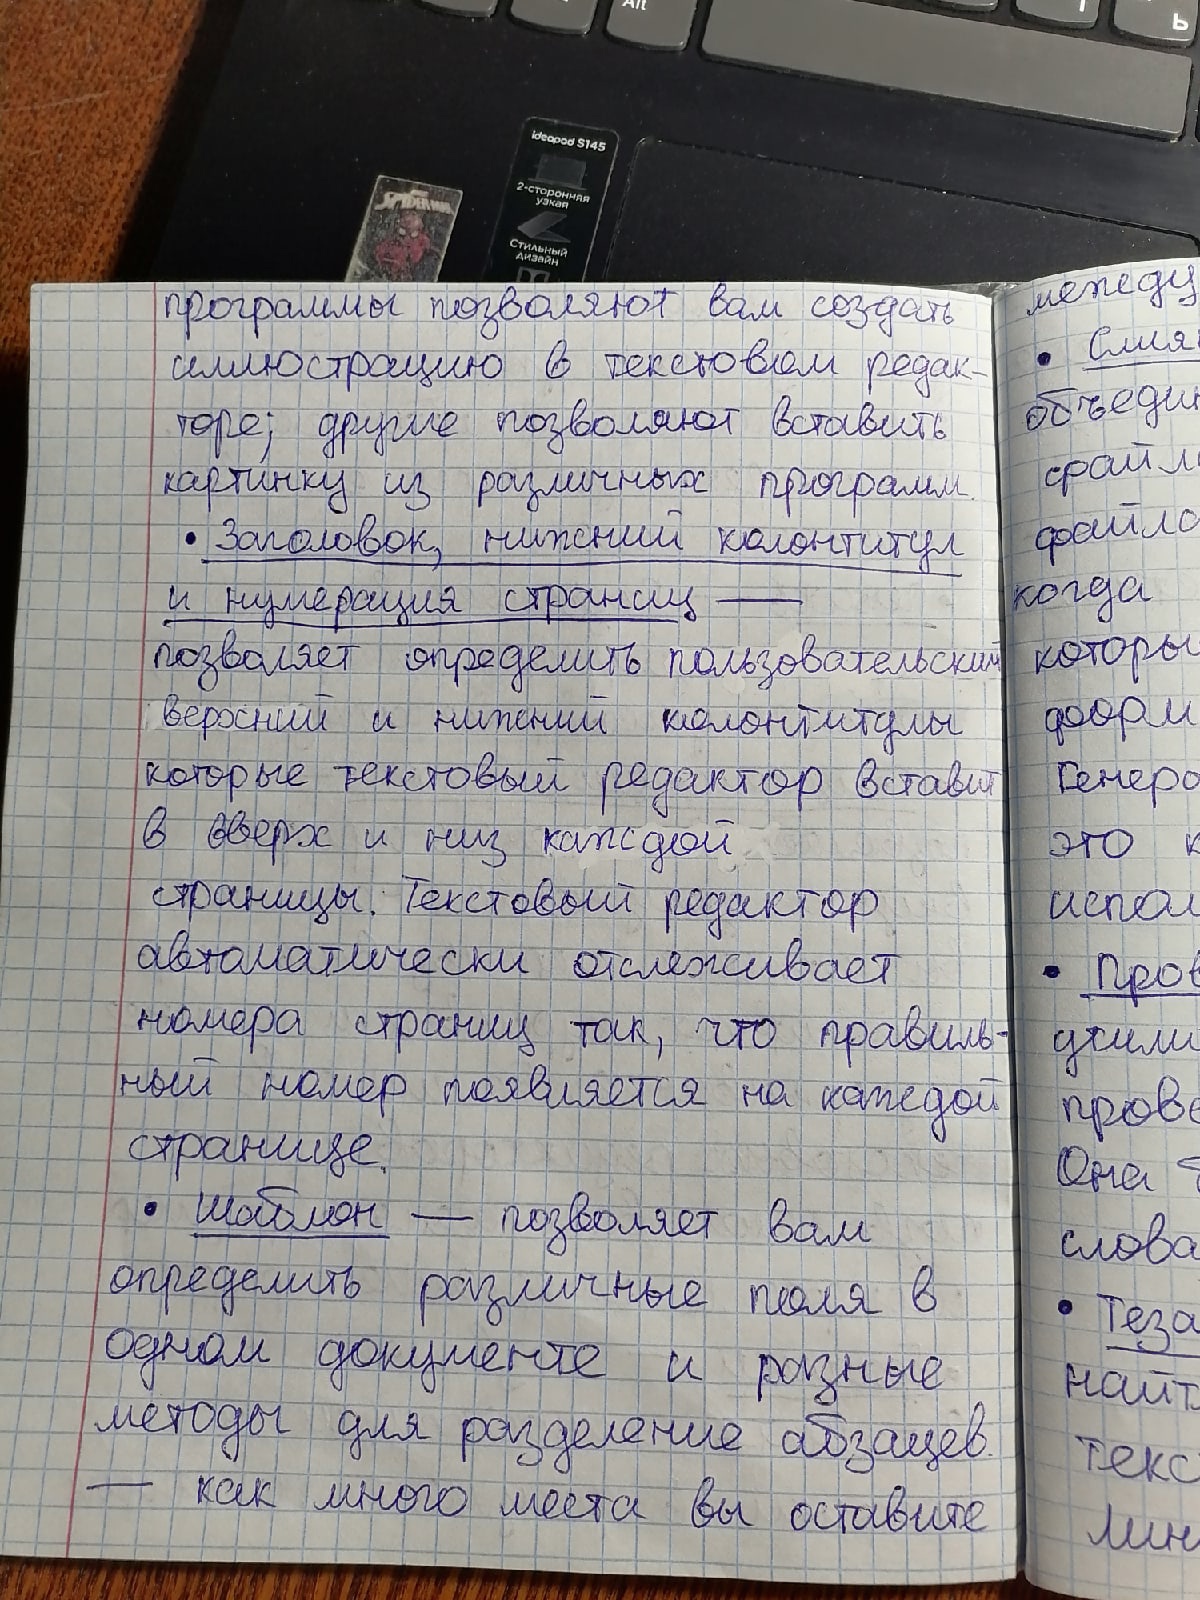 Alt
Ь
ideapad S145
2-сторонняя
узкая
Стильный
дизайн
SPIDER-MAN
программы позволяют вам создать
иллюстрацию в текстовом редак-
торе; другие позволяют вставить
картинку из различных программ.
• Заголовок, нижний колонтитул
и нумерация страниц —
позволяет определить пользовательский
верхний и нижний колонтитулы
которые текстовый редактор вставит
в вверх и низ каждой
страницы. Текстовый редактор
автоматически отслеживает
номера страниц так, что правиль-
ный номер появляется на каждой
странице.
• Шаблон — позволяет вам
определить различные поля в
одном документе и разные
методы для разделение абзацев.
— как много места вы оставите
между
• Слия
объедин
файл
файло
когда
которы
форм
Генеро
это к
испол
• Пров
прове
Она
слова
• Теза
найт
текс